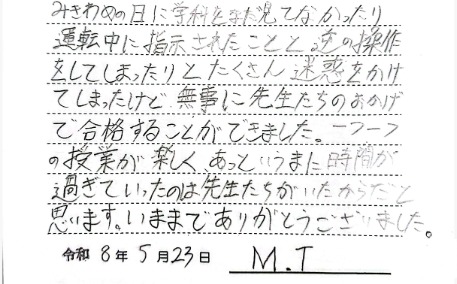 みきわめの日に学科をまだ見てなかったり
運転中に指示されたことと逆の操作
をしてしまったりとたくさん迷惑をかけ
てしまったけど無事に先生たちのおかげ
で合格することができました。一つ一つ
の授業が楽しく、あっというまに時間が
過ぎていったのは先生たちがいたからだと
思います。いままでありがとうございました。
令和 8年 5月23日 M.T